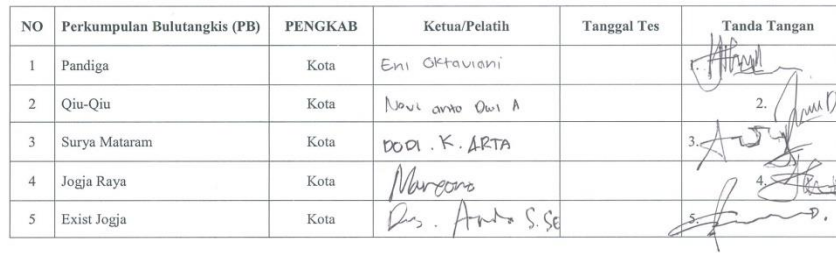 NO Perkumpulan Bulutangkis (PB) PENGKAB Ketua/Pelatih Tanggal Tes Tanda Tangan
1 Pandiga Kota Eni Oktaviani 1.
2 Qiu-Qiu Kota Novi anto Dwi A 2.
3 Surya Mataram Kota DODI . K . ARTA 3.
4 Jogja Raya Kota 4.
5 Exist Jogja Kota S.SE 5.